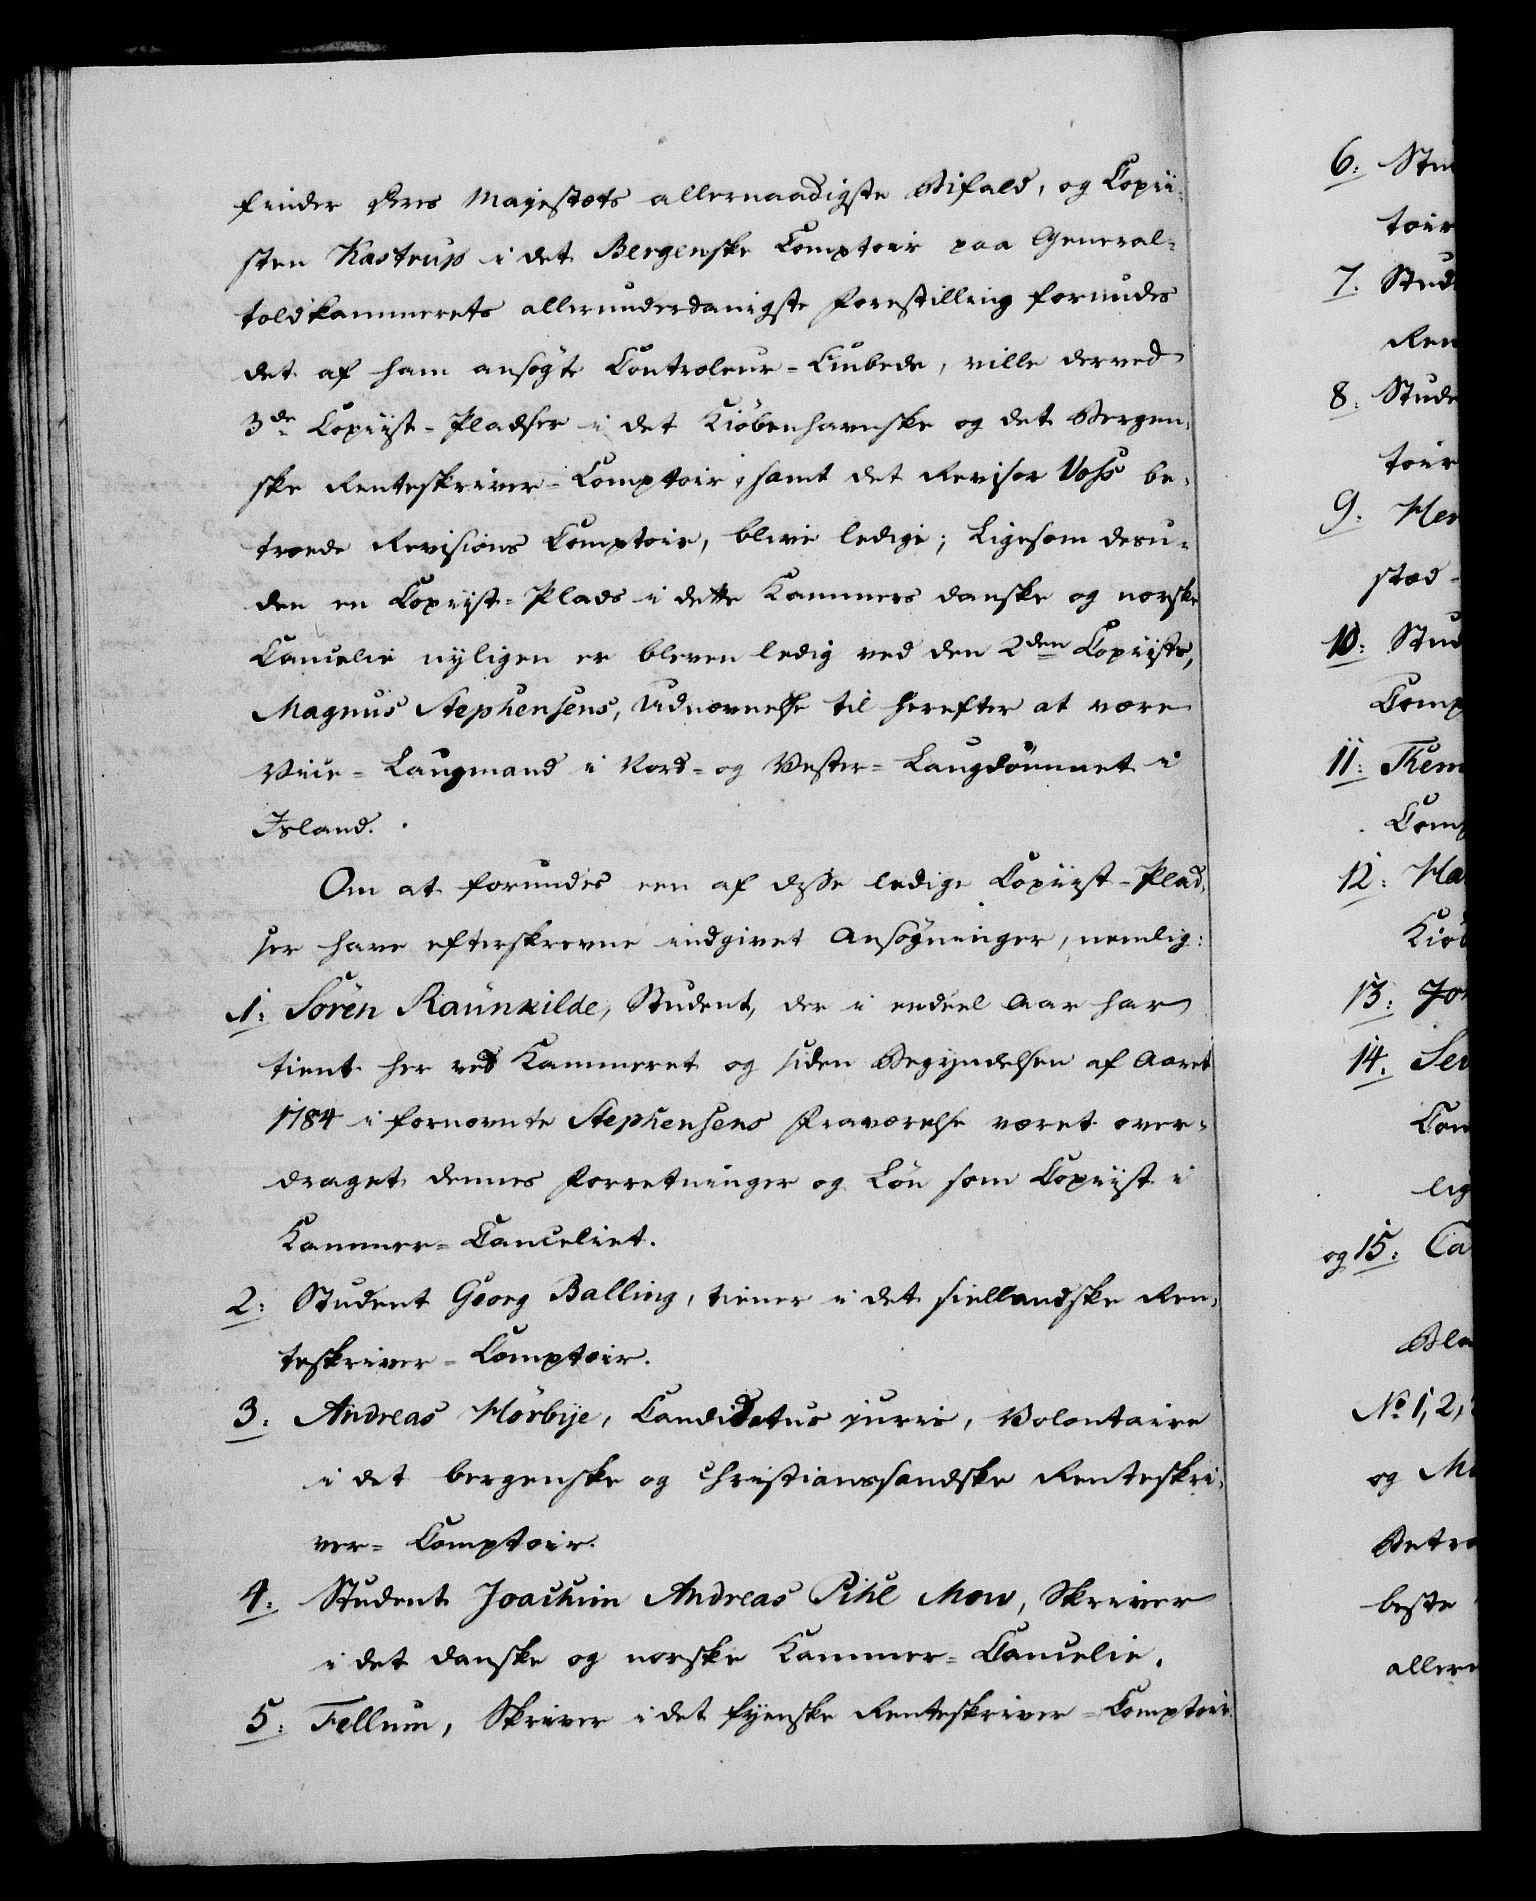 finder Deres Majestæts allernaadigste Bifald, og Copii-
sten Kastrup i det Bergenske Comptoir paa General-
toldkammerets allerunderdanigste Forestilling forundes
det af ham ansøgte Controleur-Embede, ville derved
3de Copiist-Pladser i det Kiöbenhavnske og det Bergen-
ske Renteskriver-Comptoir, samt det Revisor Voss be-
troede Revisions Comptoir, blive ledige; Ligesom desu-
den en Copiist-Plads i dette Kammers danske og norske
Cancelie nyligen er bleven ledig ved den 2den Copiists,
Magnus Stephensens, Udnævnelse til herefter at være
Vice-Laugmand i Nord- og Vester-Laugdömmet i
Island.
Om at forundes een af disse ledige Copiist-Plad-
ser have efterskrevne indgivet Ansøgninger, nemlig:
1: Sören Raunkilde, Student, der i endeel Aar har
tient her ved Kammeret og siden Begyndelsen af Aaret
1784 i fornævnte Stephensens Fraværelse været over-
draget dennes Forretninger og Løn som Copiist i
Kammer-Canceliet.
2: Student Georg Balling, tiener i det siellandske Ren-
teskriver-Comptoir.
3: Andreas Hörbye, Candidatus juris, Volontaire
i det bergenske og christianssandske Renteskri-
ver-Comptoir.
4: Student Joachim Andreas Pihl Mow, Skriver
i det danske og norske Kammer-Cancelie.
5: Fellum, Skriver i det fyenske Renteskriver-Comptoir.
6: Stu
toir
7. Stud
Ren
8: Stude
toir
9: Her
stad-
10: Stud
Comp
11: Them
Comp
12: Ha
Kiöb
13: Jo
14. Ser
Com
lig
og 15: Ca
Bla
No 1, 2,
og M
Betra
beste
aller